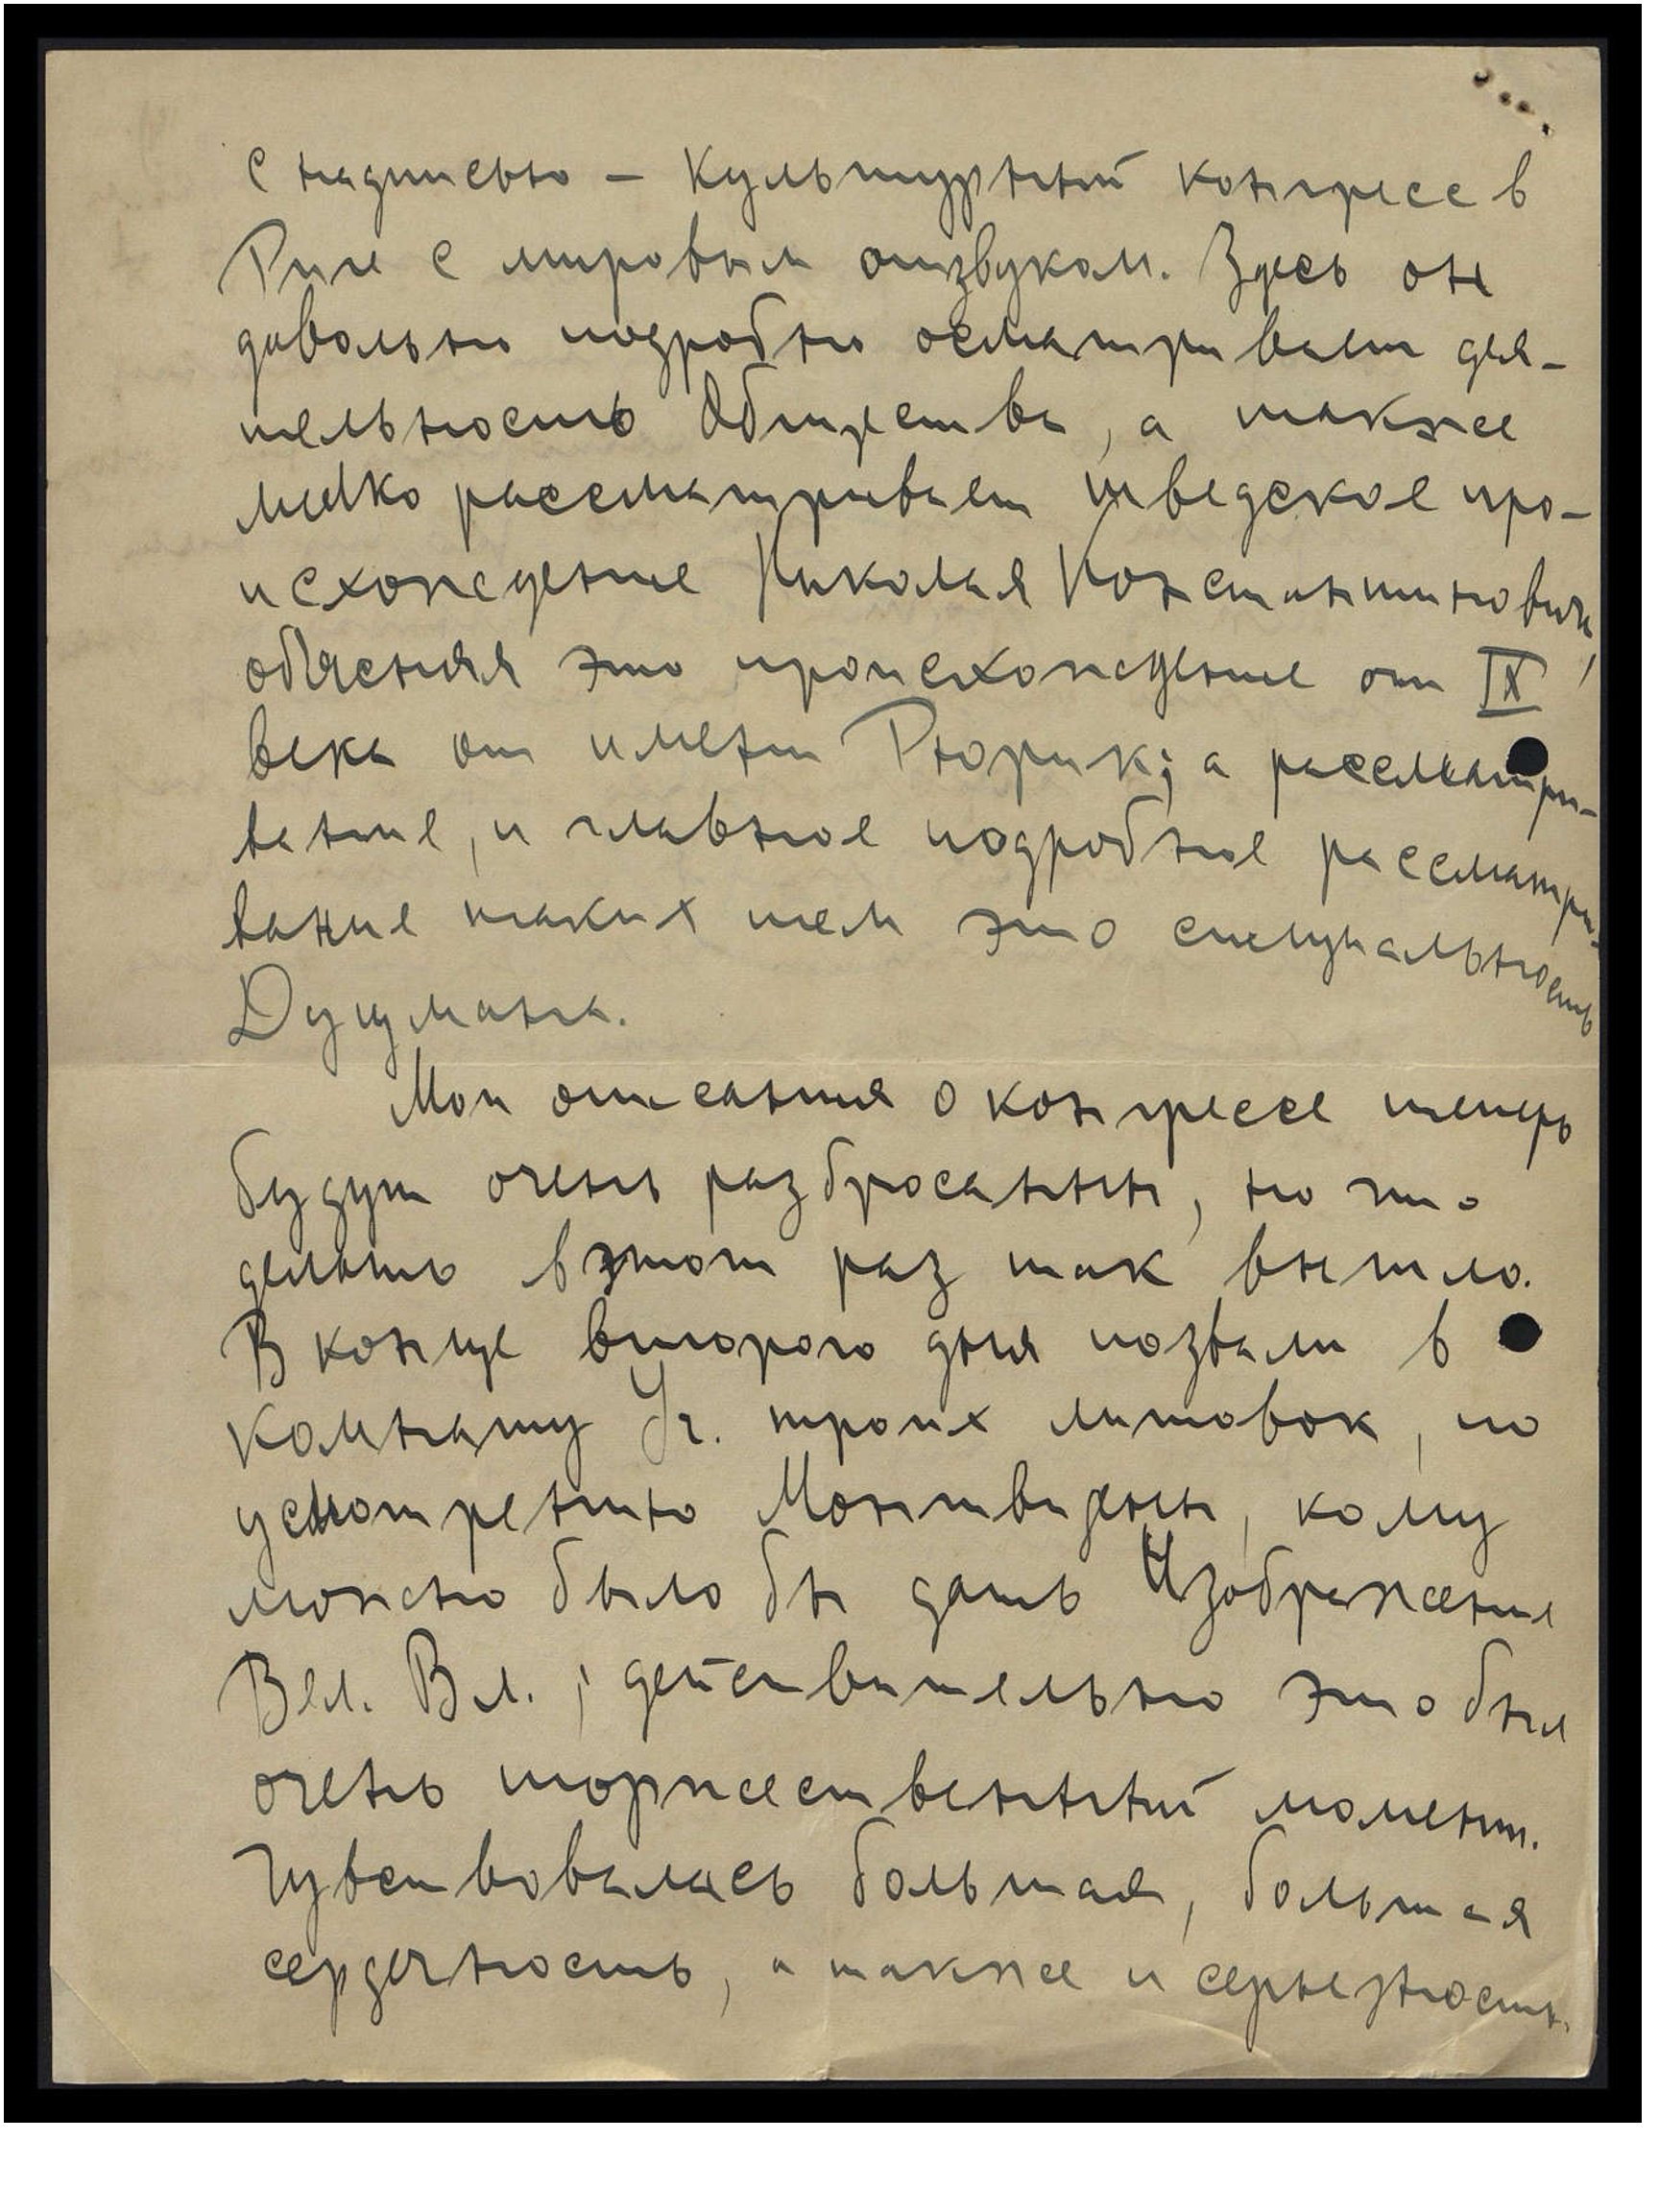 с надписью – Культурный конгресс в
Риге с мировым отзвуком. Здесь он
довольно подробно осматривает дея-
тельность Общества, а также
мелко рассматривает шведское про-
исхождение Николая Константиновича,
обясняя это происхождение от IX
века от имени Рюрик; а рассматри-
вание, и главное подробное рассматри-
вание таких тем это специальность
Дуцмана.
Мои описания о конгрессе теперь
будут очень разбросанны, но что
делать в этот раз так вышло.
В конце второго дня позвали в
комнату Уч. троих литовок, по
усмотрению Монтвидены, кому
можно было бы дать Изображение
Вел. Вл.; действительно это был
очень торжественный момент.
Чувствовалась большая, большая
сердечность, а также и серьезность.